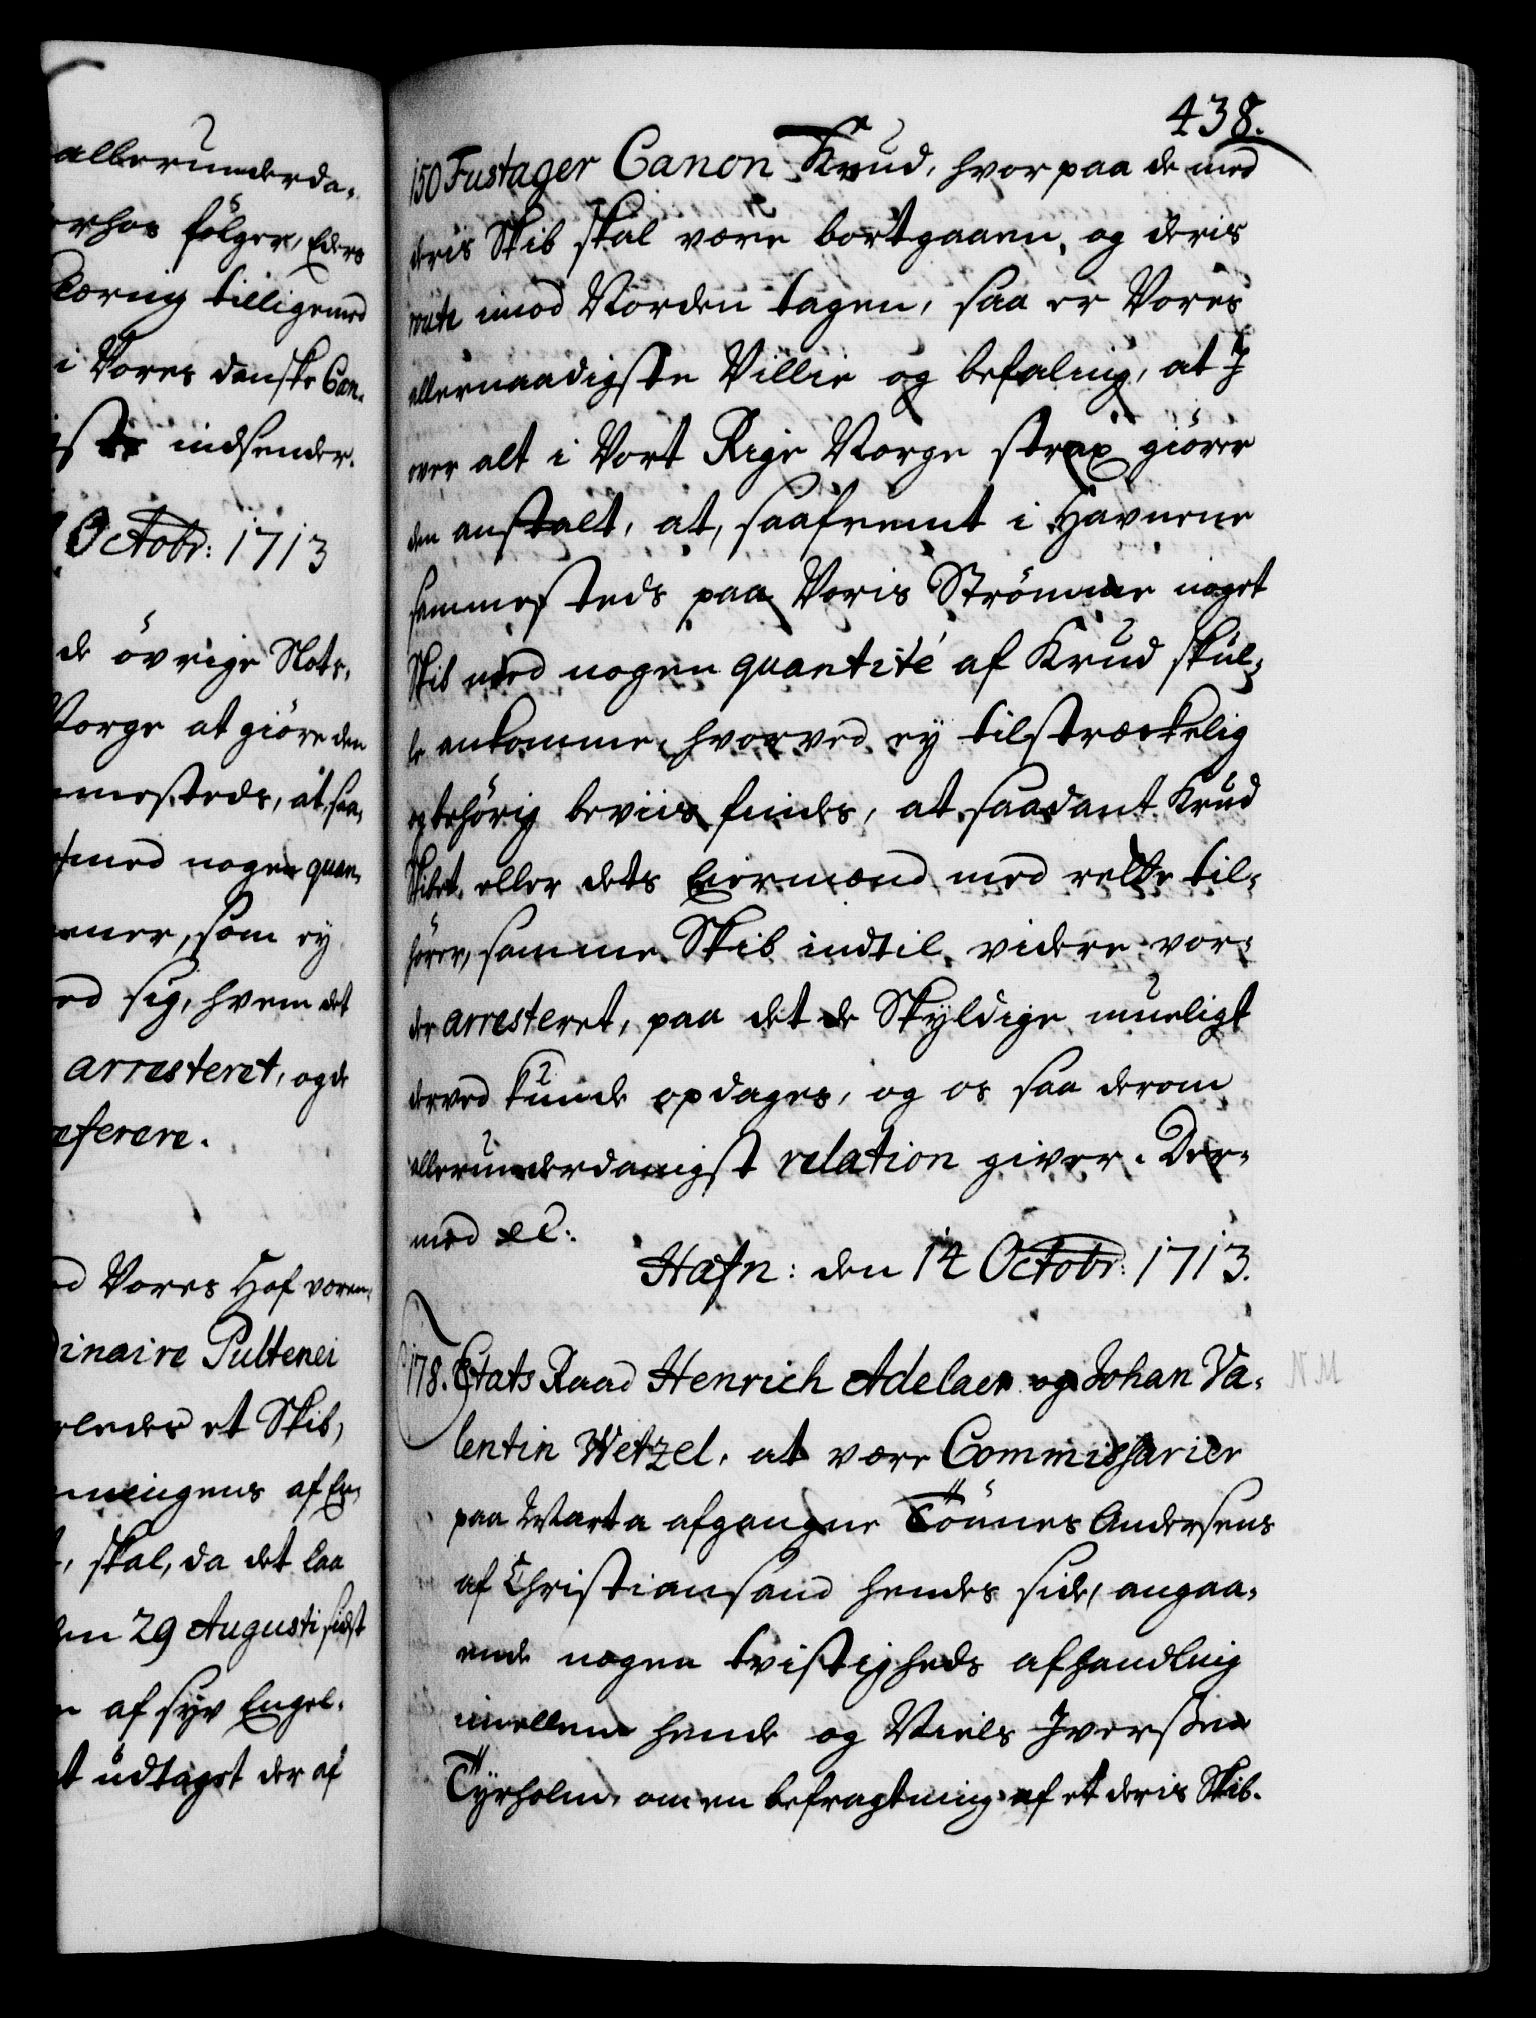 allerunderda-
rhos følger, Eders
klæring tilligemed
i Vores danske Can-
indsender.
Octobr: 1713
de øvrige Slots-
Norge at giøre den
mesteds, at saa-
med nogen quan-
som ey
sig, hvem det
arresteret, og de
referere.
Vores Hof væren-
dinaire Pultenei
ledes et Skib,
ningens af En-
skal, da det laa
29 Augusti sidst
af syv Engel-
udtaget der af
438.
150 Fustager Canon Krud, hvorpaa de med
deris Skib skal være bortgaaen, og deris
route imod Norden tagen, saa er Vores
allernaadigste Villie og befaling, at I
over alt i Vort Rige Norge strax giører
den anstalt, at, saafremt i Havnene
sammesteds paa Voris Strömme noget
Skib med nogen quantité af Krud skul-
le ankomme, hvorved ey tilstræckelig
og behörig beviis findes, at saadant Krud
Skibet eller dets Eiermænd med rette til-
hører, samme Skib indtil videre vor-
der arresteret, paa det de Skyldige mueligt
derved kunde opdages, og os saa derom
allerunderdanigst relation giver. Der-
med etc:
Hafn: den 14 Octobr: 1713.
178. Etats Raad Henrich Adelaer og Johan Va-
N M
lentin Wetzel, at være Commissarier
paa Marta afgangne Tönnes Andersens
af Christiansand hendes side, angaa-
ende nogen tvistigheds afhandling
imellem hende og Niels Iversen
Tyrholm, om en befragtning af et deris Skib.